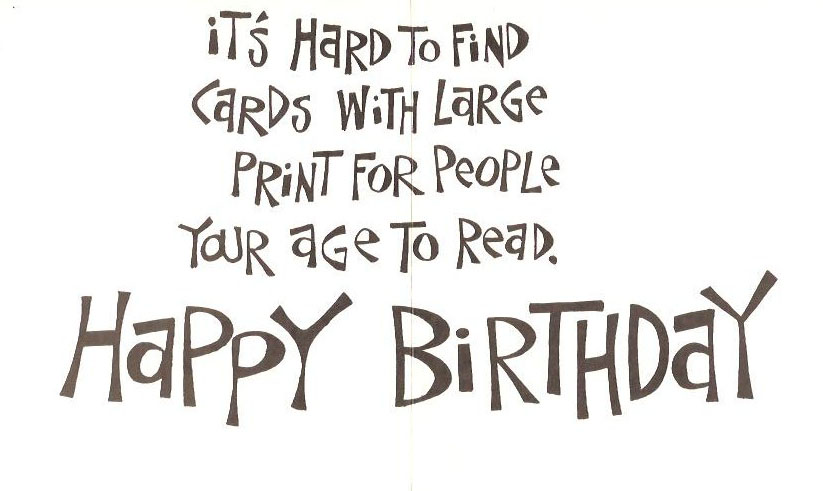 iT'S HaRD To FiND
CaRDS WiTH LaRGe
PRiNT FoR PeoPLe
YouR aGe To ReaD.
HaPPY BiRTHDaY